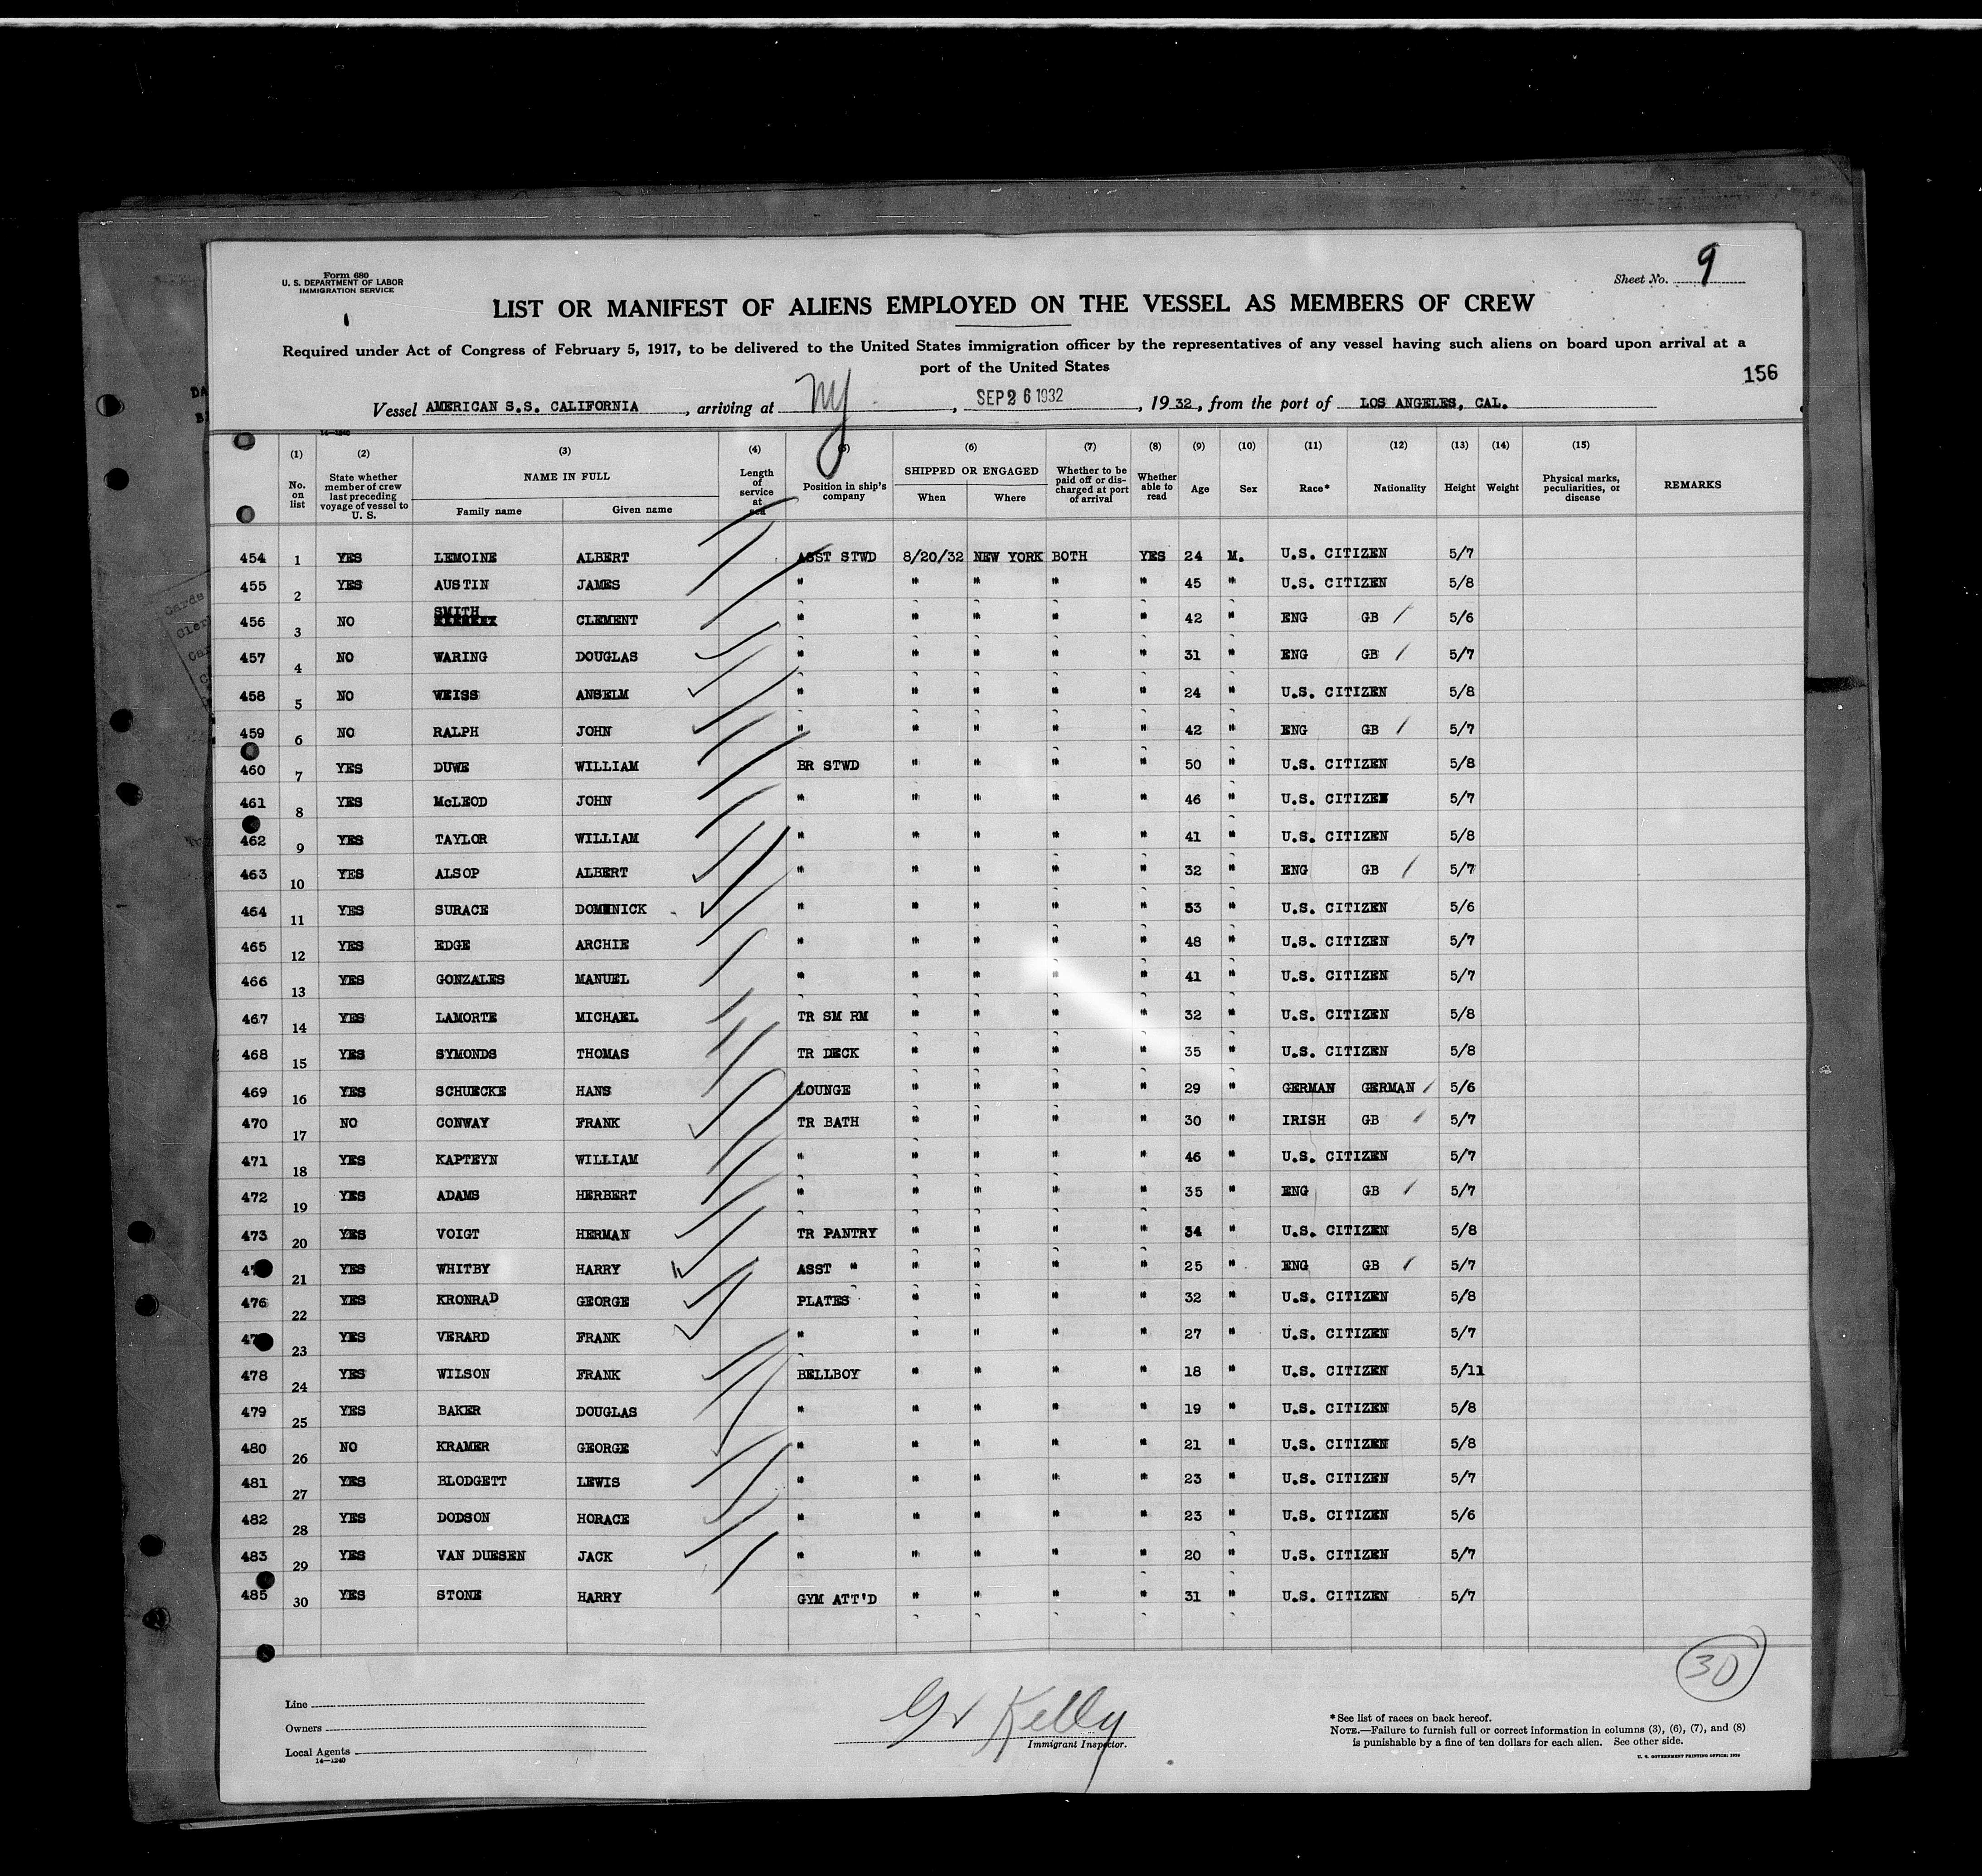 Form 680
U. S. DEPARTMENT OF LABOR
IMMIGRATION SERVICE
Sheet No. 9
LIST OR MANIFEST OF ALIENS EMPLOYED ON THE VESSEL AS MEMBERS OF CREW
Required under Act of Congress of February 5, 1917, to be delivered to the United States immigration officer by the representatives of any vessel having such aliens on board upon arrival at a
port of the United States
156
Vessel AMERICAN S.S. CALIFORNIA, arriving at NY, SEP 26 1932, 1932, from the port of LOS ANGELES, CAL.
14—1240
(1) (2) (3) (4) (5) (6) (7) (8) (9) (10) (11) (12) (13) (14) (15)
No. on list State whether member of crew last preceding voyage of vessel to U. S. NAME IN FULL Family name Given name Length of service at sea Position in ship's company SHIPPED OR ENGAGED When Where Whether to be paid off or discharged at port of arrival Whether able to read Age Sex Race* Nationality Height Weight Physical marks, peculiarities, or disease REMARKS
454 1 YES LEMOINE ALBERT ASST STWD 8/20/32 NEW YORK BOTH YES 24 M. U.S. CITIZEN 5/7
455 2 YES AUSTIN JAMES " " " " " 45 " U.S. CITIZEN 5/8
456 3 NO SMITH CLEMENT " " " " " 42 " ENG GB / 5/6
457 4 NO WARING DOUGLAS " " " " " 31 " ENG GB / 5/7
458 5 NO WEISS ANSELM " " " " " 24 " U.S. CITIZEN 5/8
459 6 NO RALPH JOHN " " " " " 42 " ENG GB / 5/7
460 7 YES DUWE WILLIAM BR STWD " " " " 50 " U.S. CITIZEN 5/8
461 8 YES McLEOD JOHN " " " " " 46 " U.S. CITIZEN 5/7
462 9 YES TAYLOR WILLIAM " " " " " 41 " U.S. CITIZEN 5/8
463 10 YES ALSOP ALBERT " " " " " 32 " ENG GB / 5/7
464 11 YES SURACE DOMINICK " " " " " 53 " U.S. CITIZEN 5/6
465 12 YES EDGE ARCHIE " " " " " 48 " U.S. CITIZEN 5/7
466 13 YES GONZALES MANUEL " " " " " 41 " U.S. CITIZEN 5/7
467 14 YES LAMORTE MICHAEL TR SM RM " " " " 32 " U.S. CITIZEN 5/8
468 15 YES SYMONDS THOMAS TR DECK " " " " 35 " U.S. CITIZEN 5/8
469 16 YES SCHUECKE HANS LOUNGE " " " " 29 " GERMAN GERMAN / 5/6
470 17 NO CONWAY FRANK TR BATH " " " " 30 " IRISH GB / 5/7
471 18 YES KAPTEYN WILLIAM " " " " " 46 " U.S. CITIZEN 5/7
472 19 YES ADAMS HERBERT " " " " " 35 " ENG GB / 5/7
473 20 YES VOIGT HERMAN TR PANTRY " " " " 34 " U.S. CITIZEN 5/8
21 YES WHITBY HARRY ASST " " " " " 25 " ENG GB / 5/7
476 22 YES KRONRAD GEORGE PLATES " " " " 32 " U.S. CITIZEN 5/8
23 YES VERARD FRANK " " " " " 27 " U.S. CITIZEN 5/7
478 24 YES WILSON FRANK BELLBOY " " " " 18 " U.S. CITIZEN 5/11
479 25 YES BAKER DOUGLAS " " " " " 19 " U.S. CITIZEN 5/8
480 26 NO KRAMER GEORGE " " " " " 21 " U.S. CITIZEN 5/8
481 27 YES BLODGETT LEWIS " " " " " 23 " U.S. CITIZEN 5/7
482 28 YES DODSON HORACE " " " " " 23 " U.S. CITIZEN 5/6
483 29 YES VAN DUESEN JACK " " " " " 20 " U.S. CITIZEN 5/7
485 30 YES STONE HARRY GYM ATT'D " " " " 31 " U.S. CITIZEN 5/7
30
Line
Owners
Local Agents
14—1240
Kelly
Immigrant Inspector.
* See list of races on back hereof.
NOTE.—Failure to furnish full or correct information in columns (3), (6), (7), and (8)
is punishable by a fine of ten dollars for each alien. See other side.
U. S. GOVERNMENT PRINTING OFFICE: